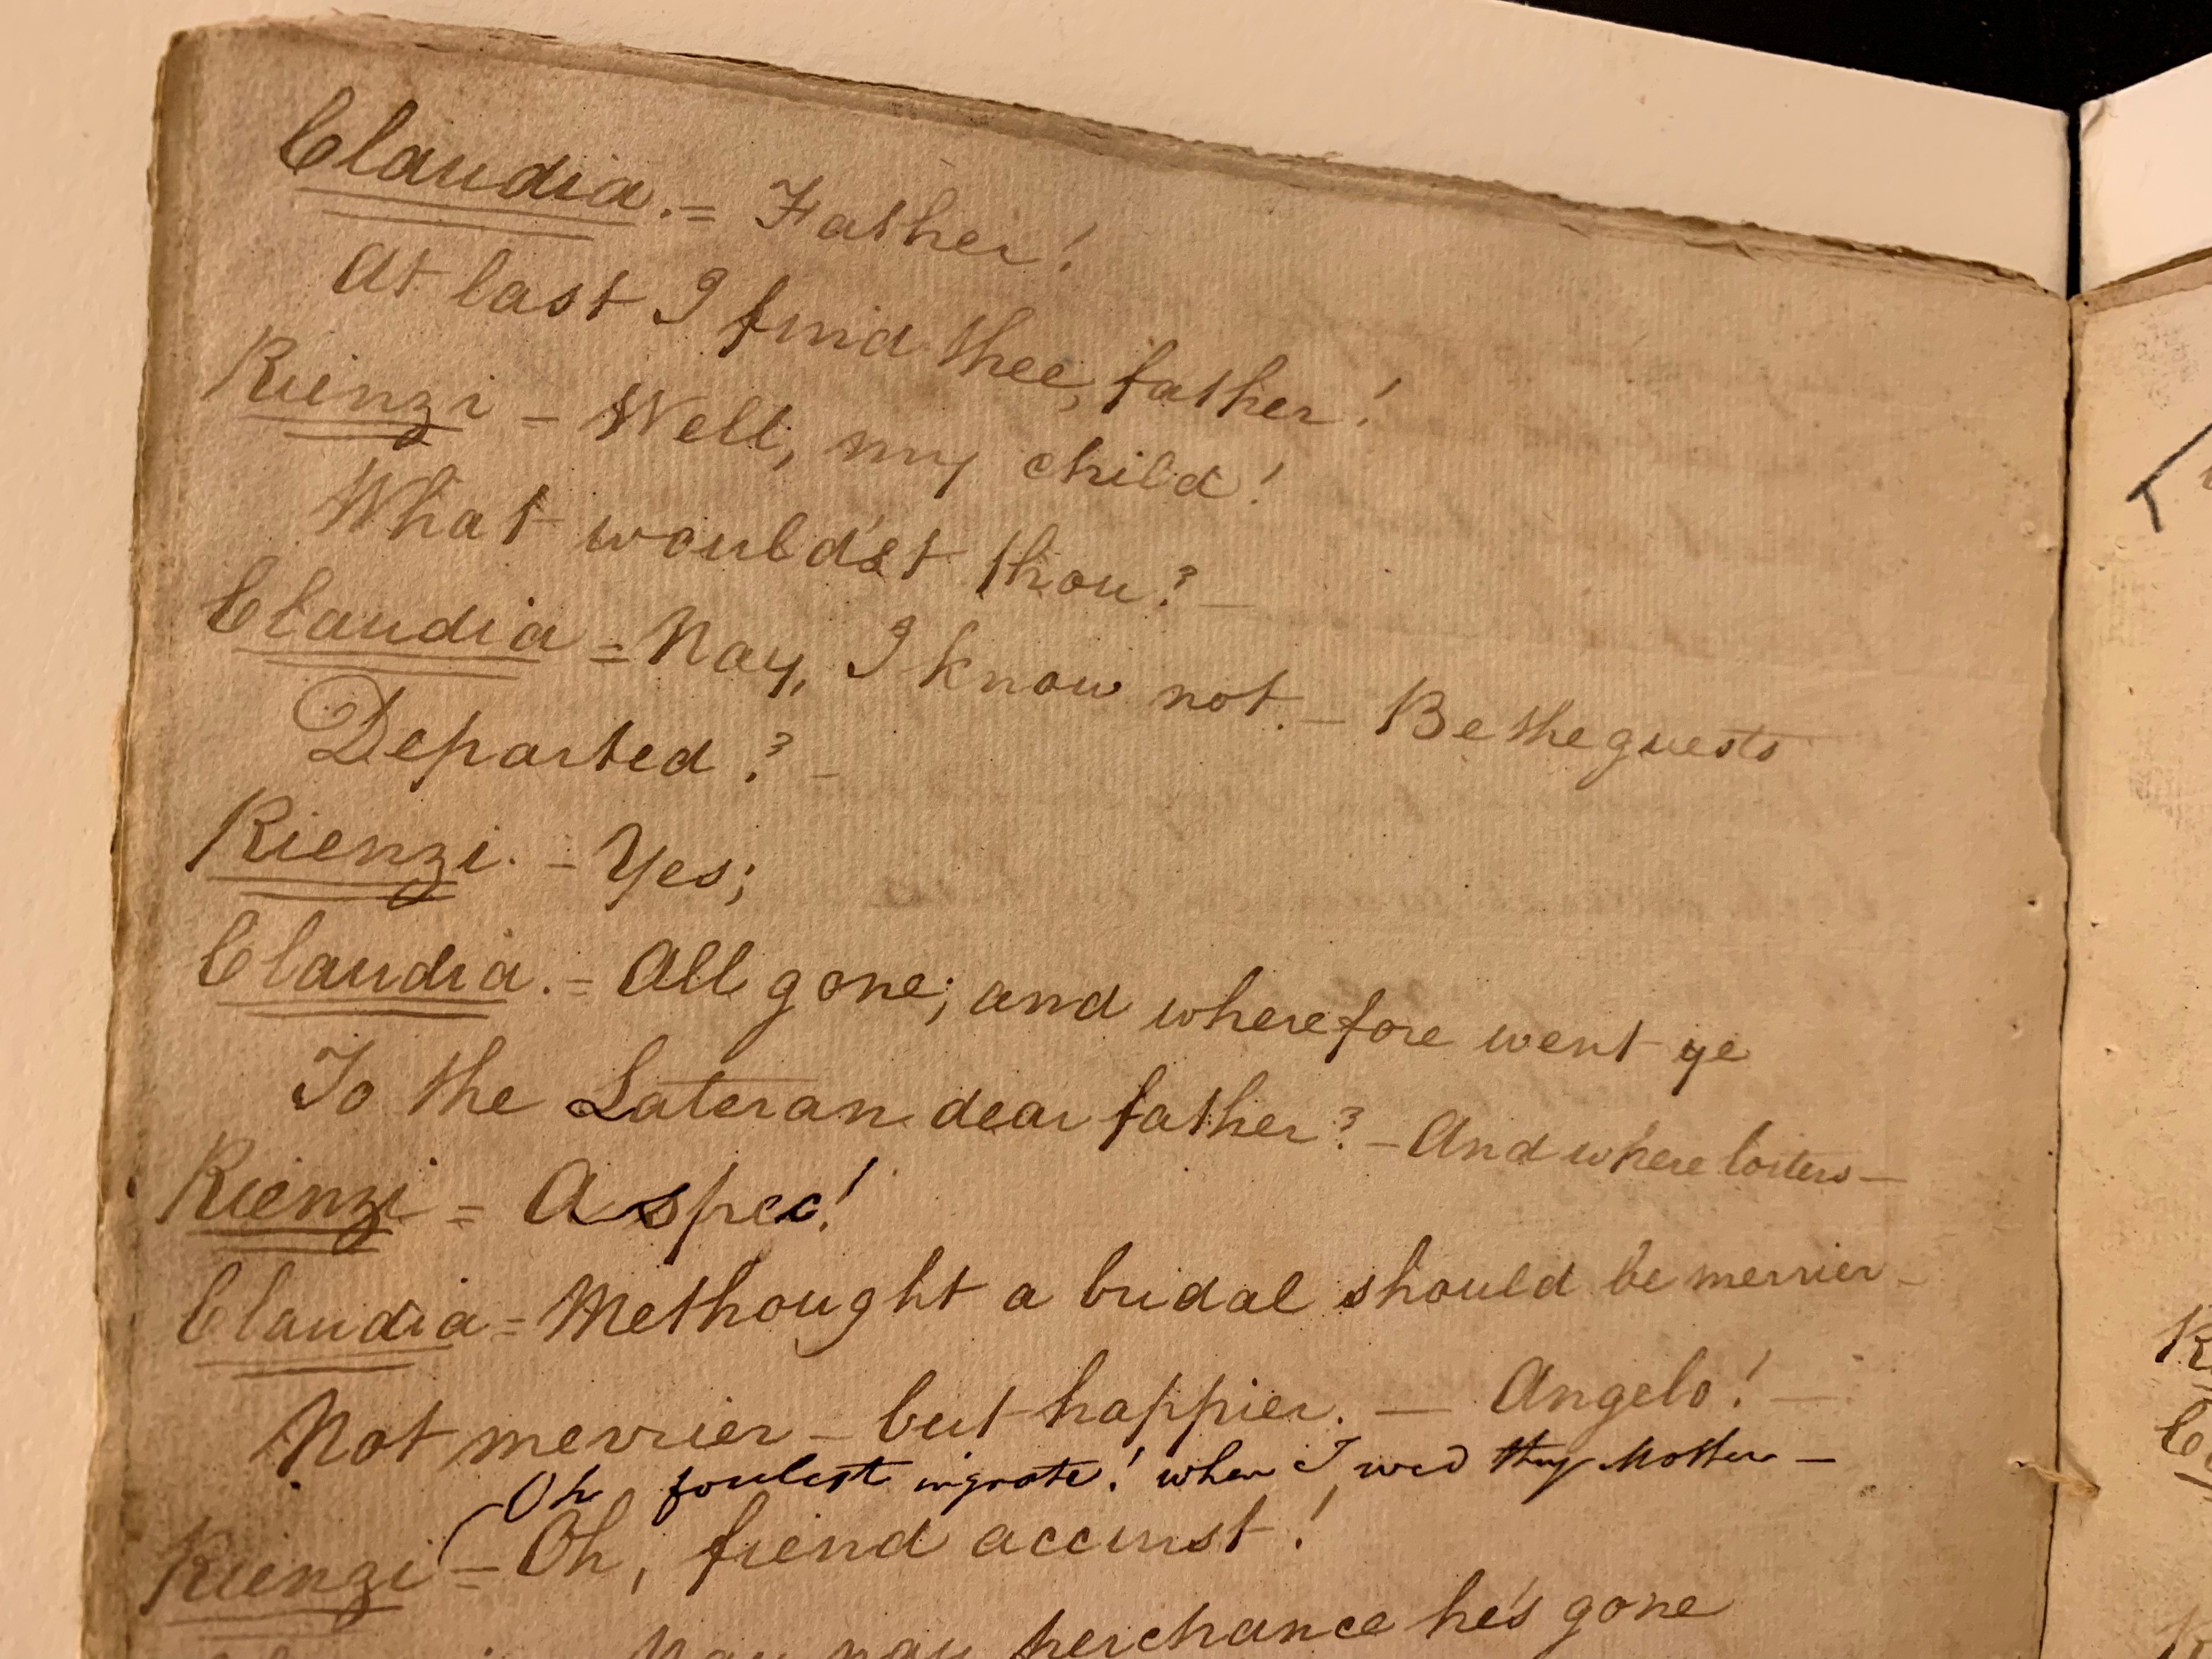 Claudia. = Father!
At last I find thee, father!
Rienzi – Well, my child!
What would'st thou? –
Claudia = Nay, I know not. – Be the guests
Departed? –
Rienzi. – Yes;
Claudia. = All gone; and wherefore went ye
To the Lateran dear father? – And where loiters –
Rienzi = A spec!
Claudia = Methought a bridal should be merrier –
Not merrier – but happier. — Angelo! –
Oh foulest ingrate! when I wed thy Mother –
Rienzi = Oh, fiend accurst!
Nay nay perchance he's gone